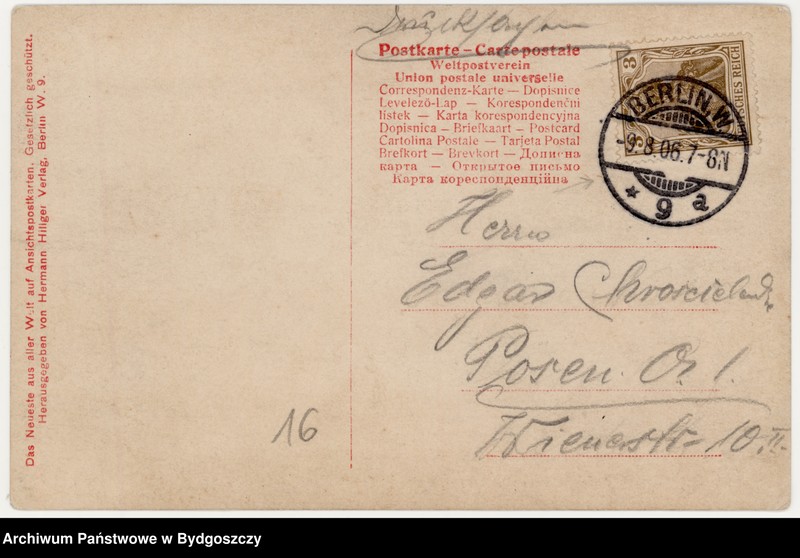 Das Neueste aus aller Welt auf Ansichtspostkarten. Gesetzlich geschützt.
Herausgegeben von Hermann Hilliger Verlag, Berlin W. 9.
Drucksachen
Postkarte – Cartepostale
Weltpostverein
Union postale universelle
Correspondenz-Karte — Dopisnice
Levelező-Lap — Korespondenční
lístek — Karta korespondencyjna
Dopisnica — Briefkaart — Postcard
Cartolina Postale — Tarjeta Postal
Brefkort — Brevkort — Дописна
карта — Открытое письмо
Карта кореспонденційна
3
DEUTSCHES REICH
3
BERLIN, W
-9.8.06.7-8N
* 9 a
Herrn
Edgar
Posen O. 1.
Wienerstr 10 II.
16
Archiwum Państwowe w Bydgoszczy